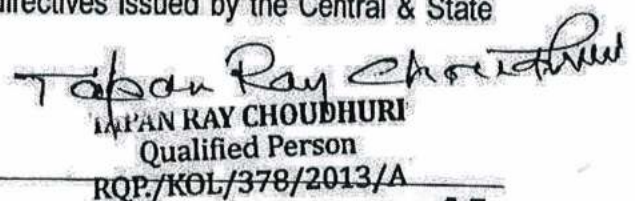 directives issued by the Central & State
Tapan Ray Choudhuri
TAPAN RAY CHOUDHURI
Qualified Person
RQP./KOL/378/2013/A